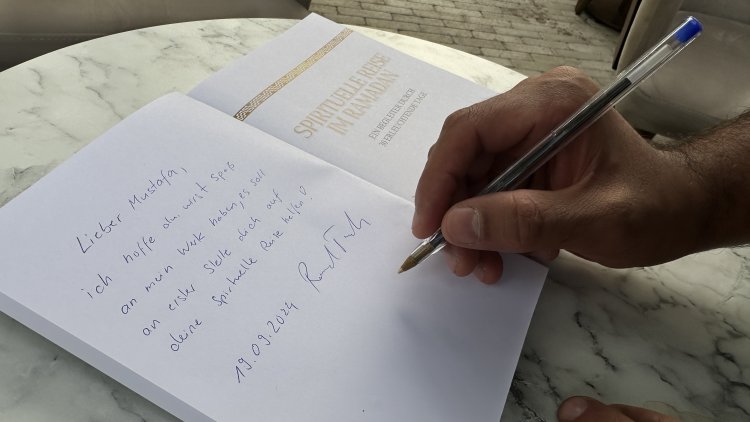 Lieber Mustafa,
ich hoffe du wirst Spaß
an mein Werk haben, es soll
an erster Stelle dich auf
deine Spirituelle Reise helfen!
19.09.2024
SPIRITUELLE REISE
IM RAMADAN
EIN BEGLEITER DURCH
30 ERLEUCHTENDE TAGE